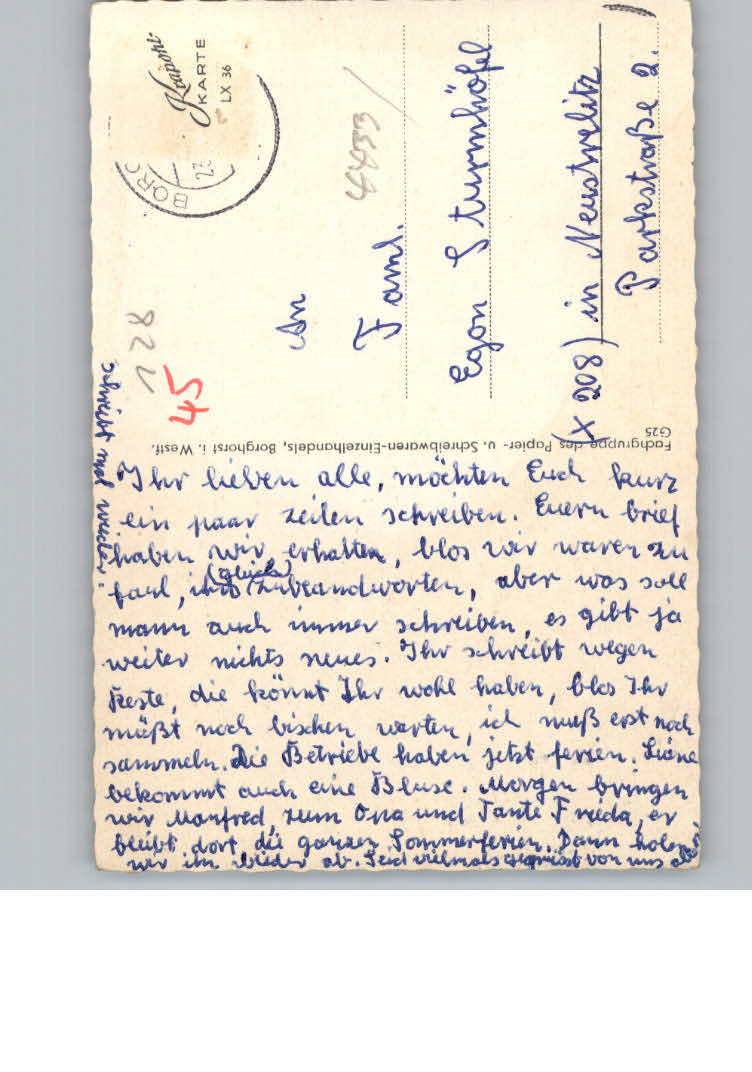 Ihr lieben alle, möchten Euch kurz
ein paar zeilen schreiben. Euern brief
haben wir erhalten, blos wir waren zu
(gleich)
faul, ihn zubeandworten, aber was soll
mann auch immer schreiben, es gibt ja
weiter nichts neues. Ihr schreibt wegen
Reste, die könnt Ihr wohl haben, blos Ihr
müßt noch bischen warten, ich muß erst noch
sammeln. Die Betriebe haben jetzt ferien. Liane
bekommt auch eine Bluse. Morgen bringen
wir Manfred, zum Opa und Tante Frieda, er
bleibt dort die ganzen Sommerferien. Dann holen
wir ihn wieder ab. Seid vielmals gegrüsst von uns allen
schreibt mal wieder.
Fachgruppe des Papier- u. Schreibwaren-Einzelhandels, Borghorst i. Westf.
G25
128
45
Krapohl-
KARTE
LX 36
BORG
4433 /
An
Faml.
Egon Sturmhöfel
(X 208) in Neustrelitz
Parkstraße 2.